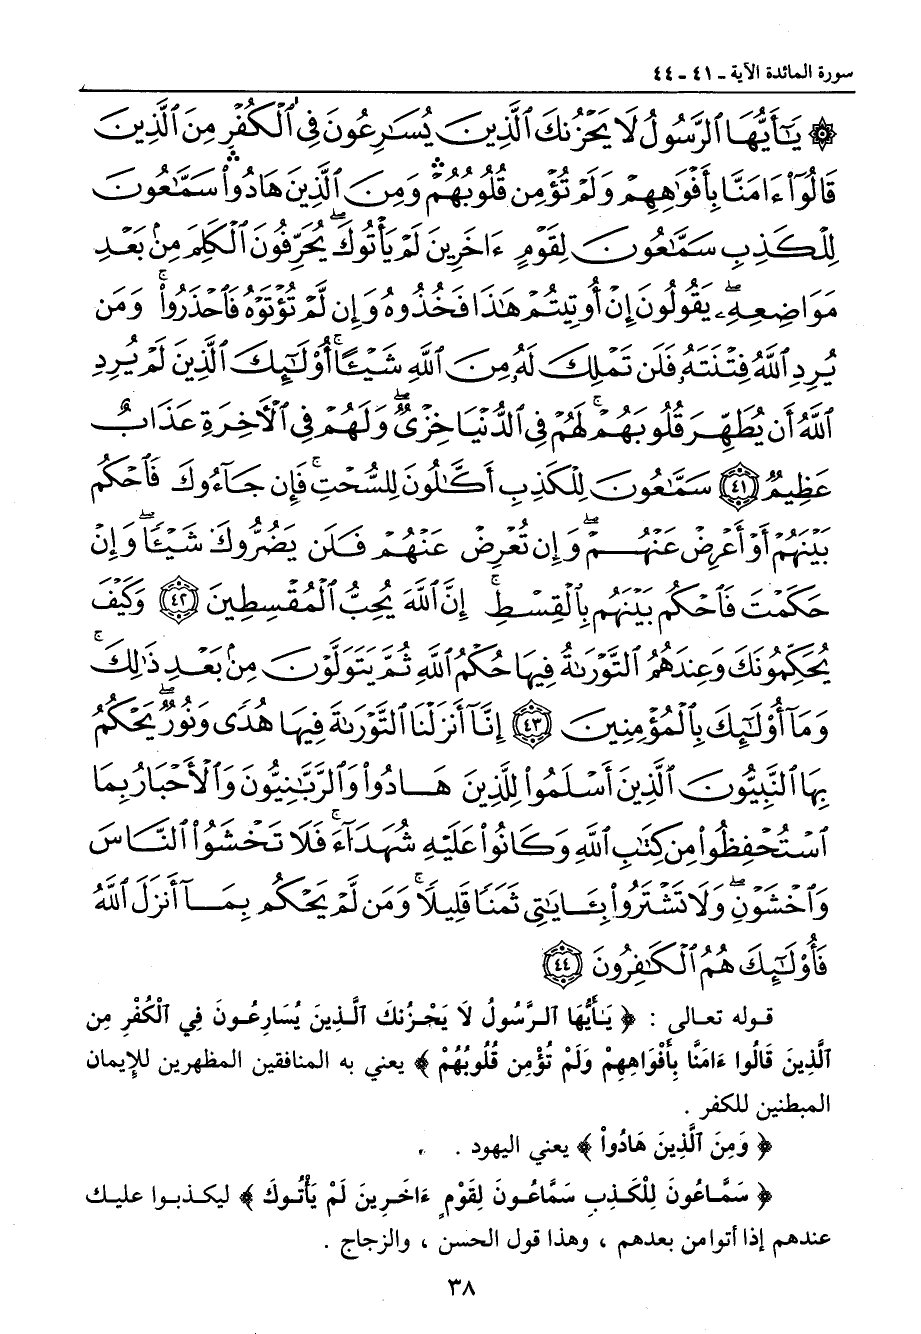 سورة المائدة الآية ـ ٤١ ـ ٤٤
۞ يَٰٓأَيُّهَا ٱلرَّسُولُ لَا يَحْزُنكَ ٱلَّذِينَ يُسَٰرِعُونَ فِى ٱلْكُفْرِ مِنَ ٱلَّذِينَ
قَالُوٓا۟ ءَامَنَّا بِأَفْوَٰهِهِمْ وَلَمْ تُؤْمِن قُلُوبُهُمْ ۛ وَمِنَ ٱلَّذِينَ هَادُوا۟ ۛ سَمَّٰعُونَ
لِلْكَذِبِ سَمَّٰعُونَ لِقَوْمٍ ءَاخَرِينَ لَمْ يَأْتُوكَ ۖ يُحَرِّفُونَ ٱلْكَلِمَ مِنۢ بَعْدِ
مَوَاضِعِهِۦ ۖ يَقُولُونَ إِنْ أُوتِيتُمْ هَٰذَا فَخُذُوهُ وَإِن لَّمْ تُؤْتَوْهُ فَٱحْذَرُوا۟ ۚ وَمَن
يُرِدِ ٱللَّهُ فِتْنَتَهُۥ فَلَن تَمْلِكَ لَهُۥ مِنَ ٱللَّهِ شَيْـًٔا ۚ أُو۟لَٰٓئِكَ ٱلَّذِينَ لَمْ يُرِدِ
ٱللَّهُ أَن يُطَهِّرَ قُلُوبَهُمْ ۚ لَهُمْ فِى ٱلدُّنْيَا خِزْىٌ ۖ وَلَهُمْ فِى ٱلْءَاخِرَةِ عَذَابٌ
عَظِيمٌ ٤١ سَمَّٰعُونَ لِلْكَذِبِ أَكَّٰلُونَ لِلسُّحْتِ ۚ فَإِن جَآءُوكَ فَٱحْكُم
بَيْنَهُمْ أَوْ أَعْرِضْ عَنْهُمْ ۖ وَإِن تُعْرِضْ عَنْهُمْ فَلَن يَضُرُّوكَ شَيْـًٔا ۖ وَإِنْ
حَكَمْتَ فَٱحْكُم بَيْنَهُم بِٱلْقِسْطِ ۚ إِنَّ ٱللَّهَ يُحِبُّ ٱلْمُقْسِطِينَ ٤٢ وَكَيْفَ
يُحَكِّمُونَكَ وَعِندَهُمُ ٱلتَّوْرَىٰةُ فِيهَا حُكْمُ ٱللَّهِ ثُمَّ يَتَوَلَّوْنَ مِنۢ بَعْدِ ذَٰلِكَ ۚ
وَمَآ أُو۟لَٰٓئِكَ بِٱلْمُؤْمِنِينَ ٤٣ إِنَّآ أَنزَلْنَا ٱلتَّوْرَىٰةَ فِيهَا هُدًى وَنُورٌ ۚ يَحْكُمُ
بِهَا ٱلنَّبِيُّونَ ٱلَّذِينَ أَسْلَمُوا۟ لِلَّذِينَ هَادُوا۟ وَٱلرَّبَّٰنِيُّونَ وَٱلْأَحْبَارُ بِمَا
ٱسْتُحْفِظُوا۟ مِن كِتَٰبِ ٱللَّهِ وَكَانُوا۟ عَلَيْهِ شُهَدَآءَ ۚ فَلَا تَخْشَوُا۟ ٱلنَّاسَ
وَٱخْشَوْنِ ۖ وَلَا تَشْتَرُوا۟ بِـَٔايَٰتِى ثَمَنًا قَلِيلًا ۚ وَمَن لَّمْ يَحْكُم بِمَآ أَنزَلَ ٱللَّهُ
فَأُو۟لَٰٓئِكَ هُمُ ٱلْكَٰفِرُونَ ٤٤
قوله تعالى : ﴿ يَٰأَيُّهَا ٱلرَّسُولُ لَا يَحْزُنكَ ٱلَّذِينَ يُسَارِعُونَ فِي ٱلْكُفْرِ مِن
ٱلَّذِينَ قَالُوا ءَامَنَّا بِأَفْوَاهِهِمْ وَلَمْ تُؤْمِن قُلُوبُهُمْ ﴾ يعني به المنافقين المظهرين للإِيمان
المبطنين للكفر .
﴿ وَمِنَ ٱلَّذِينَ هَادُواْ ﴾ يعني اليهود .
﴿ سَمَّاعُونَ لِلْكَذِبِ سَمَّاعُونَ لِقَوْمٍ ءَاخَرِينَ لَمْ يَأْتُوكَ ﴾ ليكذبوا عليك
عندهم إذا أتوا من بعدهم ، وهذا قول الحسن ، والزجاج .
٣٨